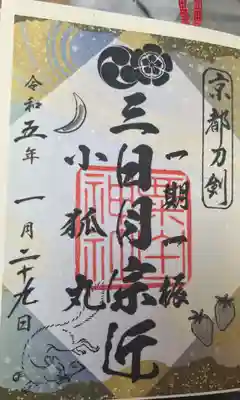 京都刀剣
一期一振
三日月宗近
小狐丸
粟田神社
令和五年一月二十九日